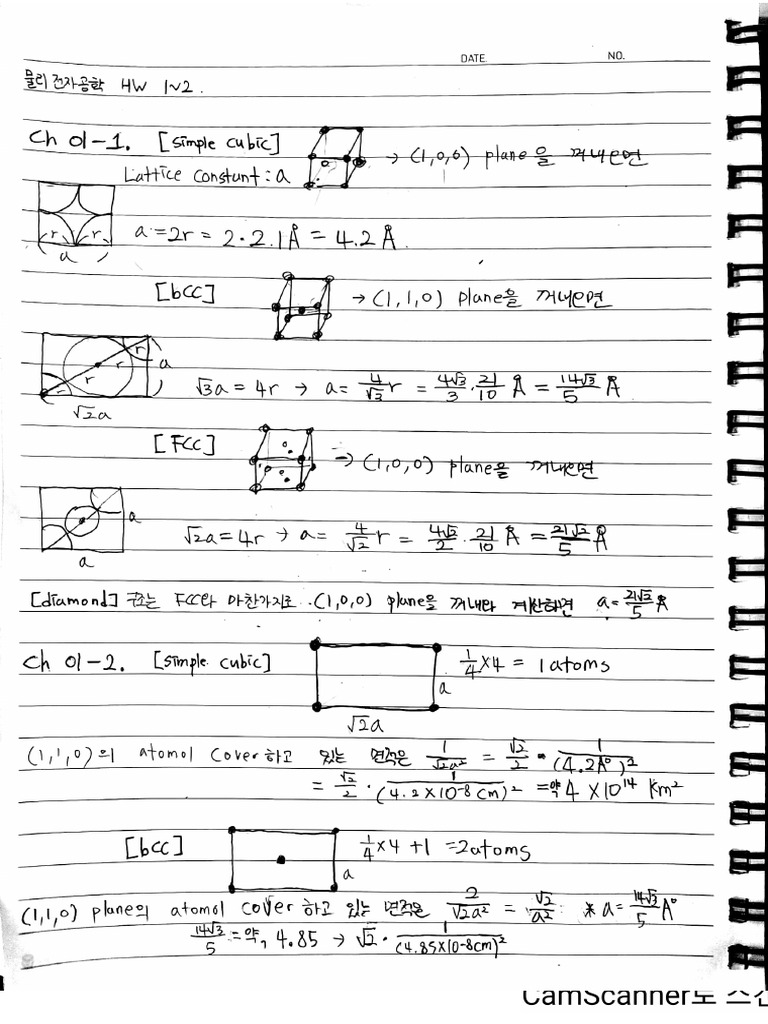 DATE. NO.
물리전자공학 HW 1~2.
Ch 01-1. [simple cubic] → (1,0,0) plane을 꺼내오면
Lattice constant : a
r r
a
a = 2r = 2·2.1Å = 4.2Å.
[bcc] → (1,1,0) plane을 꺼내오면
r
r
r
a
√2a
√3a = 4r → a = 4/√3 r = 4√3/3 · 21/10 Å = 14√3/5 Å
[FCC] → (1,0,0) plane을 꺼내오면
a
a
√2a = 4r → a = 4/√2 r = 4√2/2 · 21/10 Å = 21√2/5 Å
[diamond] 구조는 FCC와 마찬가지로 (1,0,0) plane을 꺼내와 계산하면 a = 21√2/5 Å
Ch 01-2. [simple cubic] 1/4×4 = 1atoms
a
√2a
(1,1,0)의 atom이 cover하고 있는 면적은 1/√2a² = √2/2 · 1/(4.2A°)²
= √2/2 · 1/(4.2×10-8cm)² =약 4×10¹⁴ km²
[bcc] 1/4×4 +1 =2atoms
a
(1,1,0) plane의 atom이 cover하고 있는 면적은 2/√2a² = √2/a² ※ a= 14√3/5 A°
14√3/5 =약, 4.85 → √2 · 1/(4.85×10-8cm)²
CamScanner로 스캔